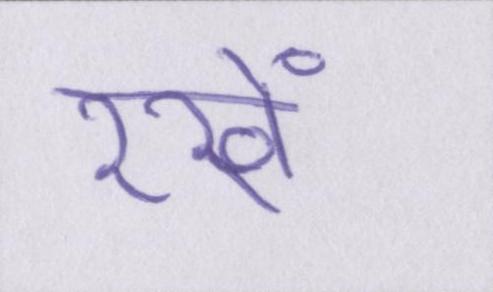 रखें